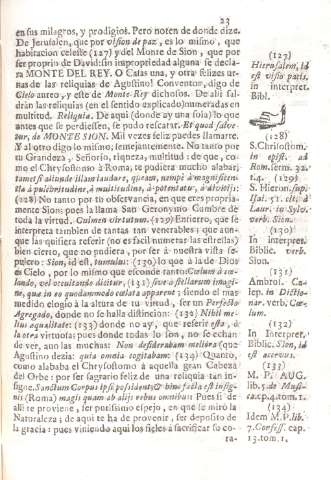 23
en sus milagros, y prodigios. Pero noten de donde dize.
De Jerusalen, que por vision de paz, es lo mismo, que
habitacion celeste (127) y del Monte de Sion, que por
ser proprio de David sin impropriedad alguna se decla-
ra MONTE DEL REY. O Casa una, y otra felizes ur-
nas de las reliquias de Agustino! Conventor, digo de
Cielo aureo, y este de Monte-Rey dichosos. De alli sal-
drán las reliquias (en el sentido explicado) numeradas en
multitud. Reliquiæ. De aqui (donde ay una sola) lo que
antes que se perdiessen, se pudo rescatar. Et quod salve-
tur, de MONTE SION. Mil vezes feliz puedes llamarte.
Y al otro digo lo mismo, semejantemente. No tanto por
tu Grandeza, Señorio, riqueza, multitud: de que, como
el Chrysostomo à Roma, te pudiera mui bien alabar:
tamet si aliunde illam laudare, queam, nempè à magnificen-
tia, à pulchritudine, à multitudine, à potentatu, à divitijs:
(128) No tanto por tu observancia, en que eres propria-
mente Sion; pues la llama San Geronymo Cumbre de
toda la virtud. Culmen virtutum. (129) Entierro, que se
interpreta tambien de tantas tan venerables; que aun-
que las quisiera referir (no es facil numerar las estrellas)
bien cierto, que no pudiera, por ser à nuestra vista se-
pulcro: Sion, id est, tumulus: (130) lo que à la de Dios
es Cielo, por lo mismo que esconde tantos Cœlum à cæ-
lando, vel occultando dicitur, (131) sive à stellarum imagi-
ne, que in eo quodammodo celata apparent; siendo el mas
medido elogio à la altura de tu virtud, ser un Perfecto
Agregado, donde no se halla distincion: (132) Nihil me-
lius æqualitate: (133) donde no ay, que referir esta, ò
la otra virtud; pues donde todas lo son, no se echan
de ver, aun las muchas: Non desiderabam meliora (que
Agustino dezia: quia omnia cogitabam: (134) Quanto,
como alababa el Chrysostomo à aquella gran Cabeza
del Orbe: por ser sagrario feliz de una reliquia tan in-
signe. Sanctum Corpus ipsi possidens & bine facta est insig-
nis (Roma) magis quam ab alijs rebus omnibus: Pues si de
alli te proviene, ser purissimo espejo, en que se mirò la
Naturaleza; de aqui te ha de provenir, ser deposito de
la gracia: pues viniendo aqui los siglos à sacrificar se co-
ra-
(127)
Hierusalem, id
est visio pacis.
in interpret.
Bibl.
(128)
S. Chrisostom.
in epist. ad
Rom. serm. 32.
t. 4. (129)
S. Hieron. sup.
Isai. 51. cit. à
Laur. in Sylv.
verb. Sion.
(130)
In interpret.
Biblic. verb.
Sion.
(131)
Ambros. Ca-
lep. in Dictio-
nar. verb. Cæ-
lum.
(132)
In Interpret.
Biblic. Sion, id
est acervus.
(133)
M. P. AUG.
lib. 5. de Musi-
ca. c. p. 4. tom. 1.
(134)
Idem M. P. lib.
7. Confess. cap.
13. tom. 1.